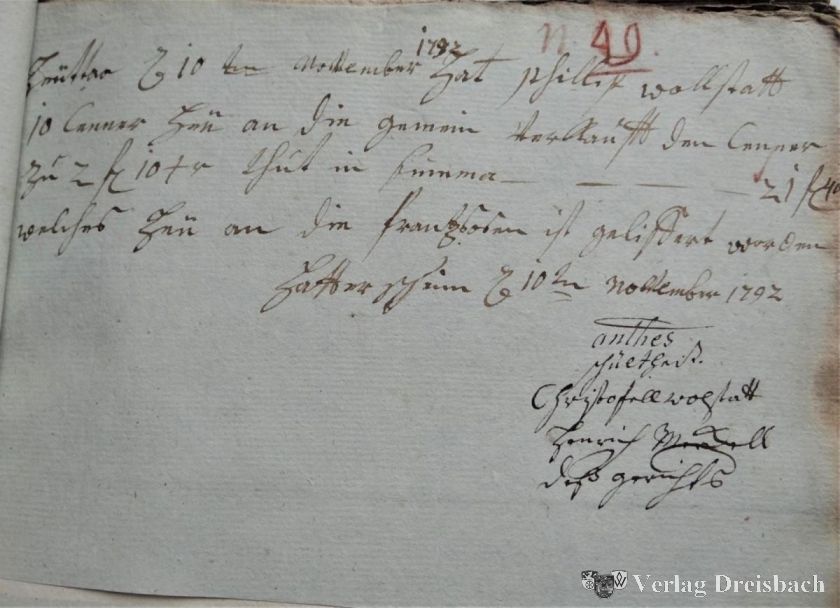 n. 40.
Heüttao d 10 tn November 1792 hat phillip wollstatt
10 Cenner heü an die gemein verkaufft den Cenner
zu 2 fl 10 xr thut in summa — — — — — 21 fl 40
welches heu an die frantzosen ist geliffert worden
hatterscheim d 10 tn November 1792
anthes
schültheiß.
Christofell wolstatt
henrich
deß gerichts
Verlag Dreisbach